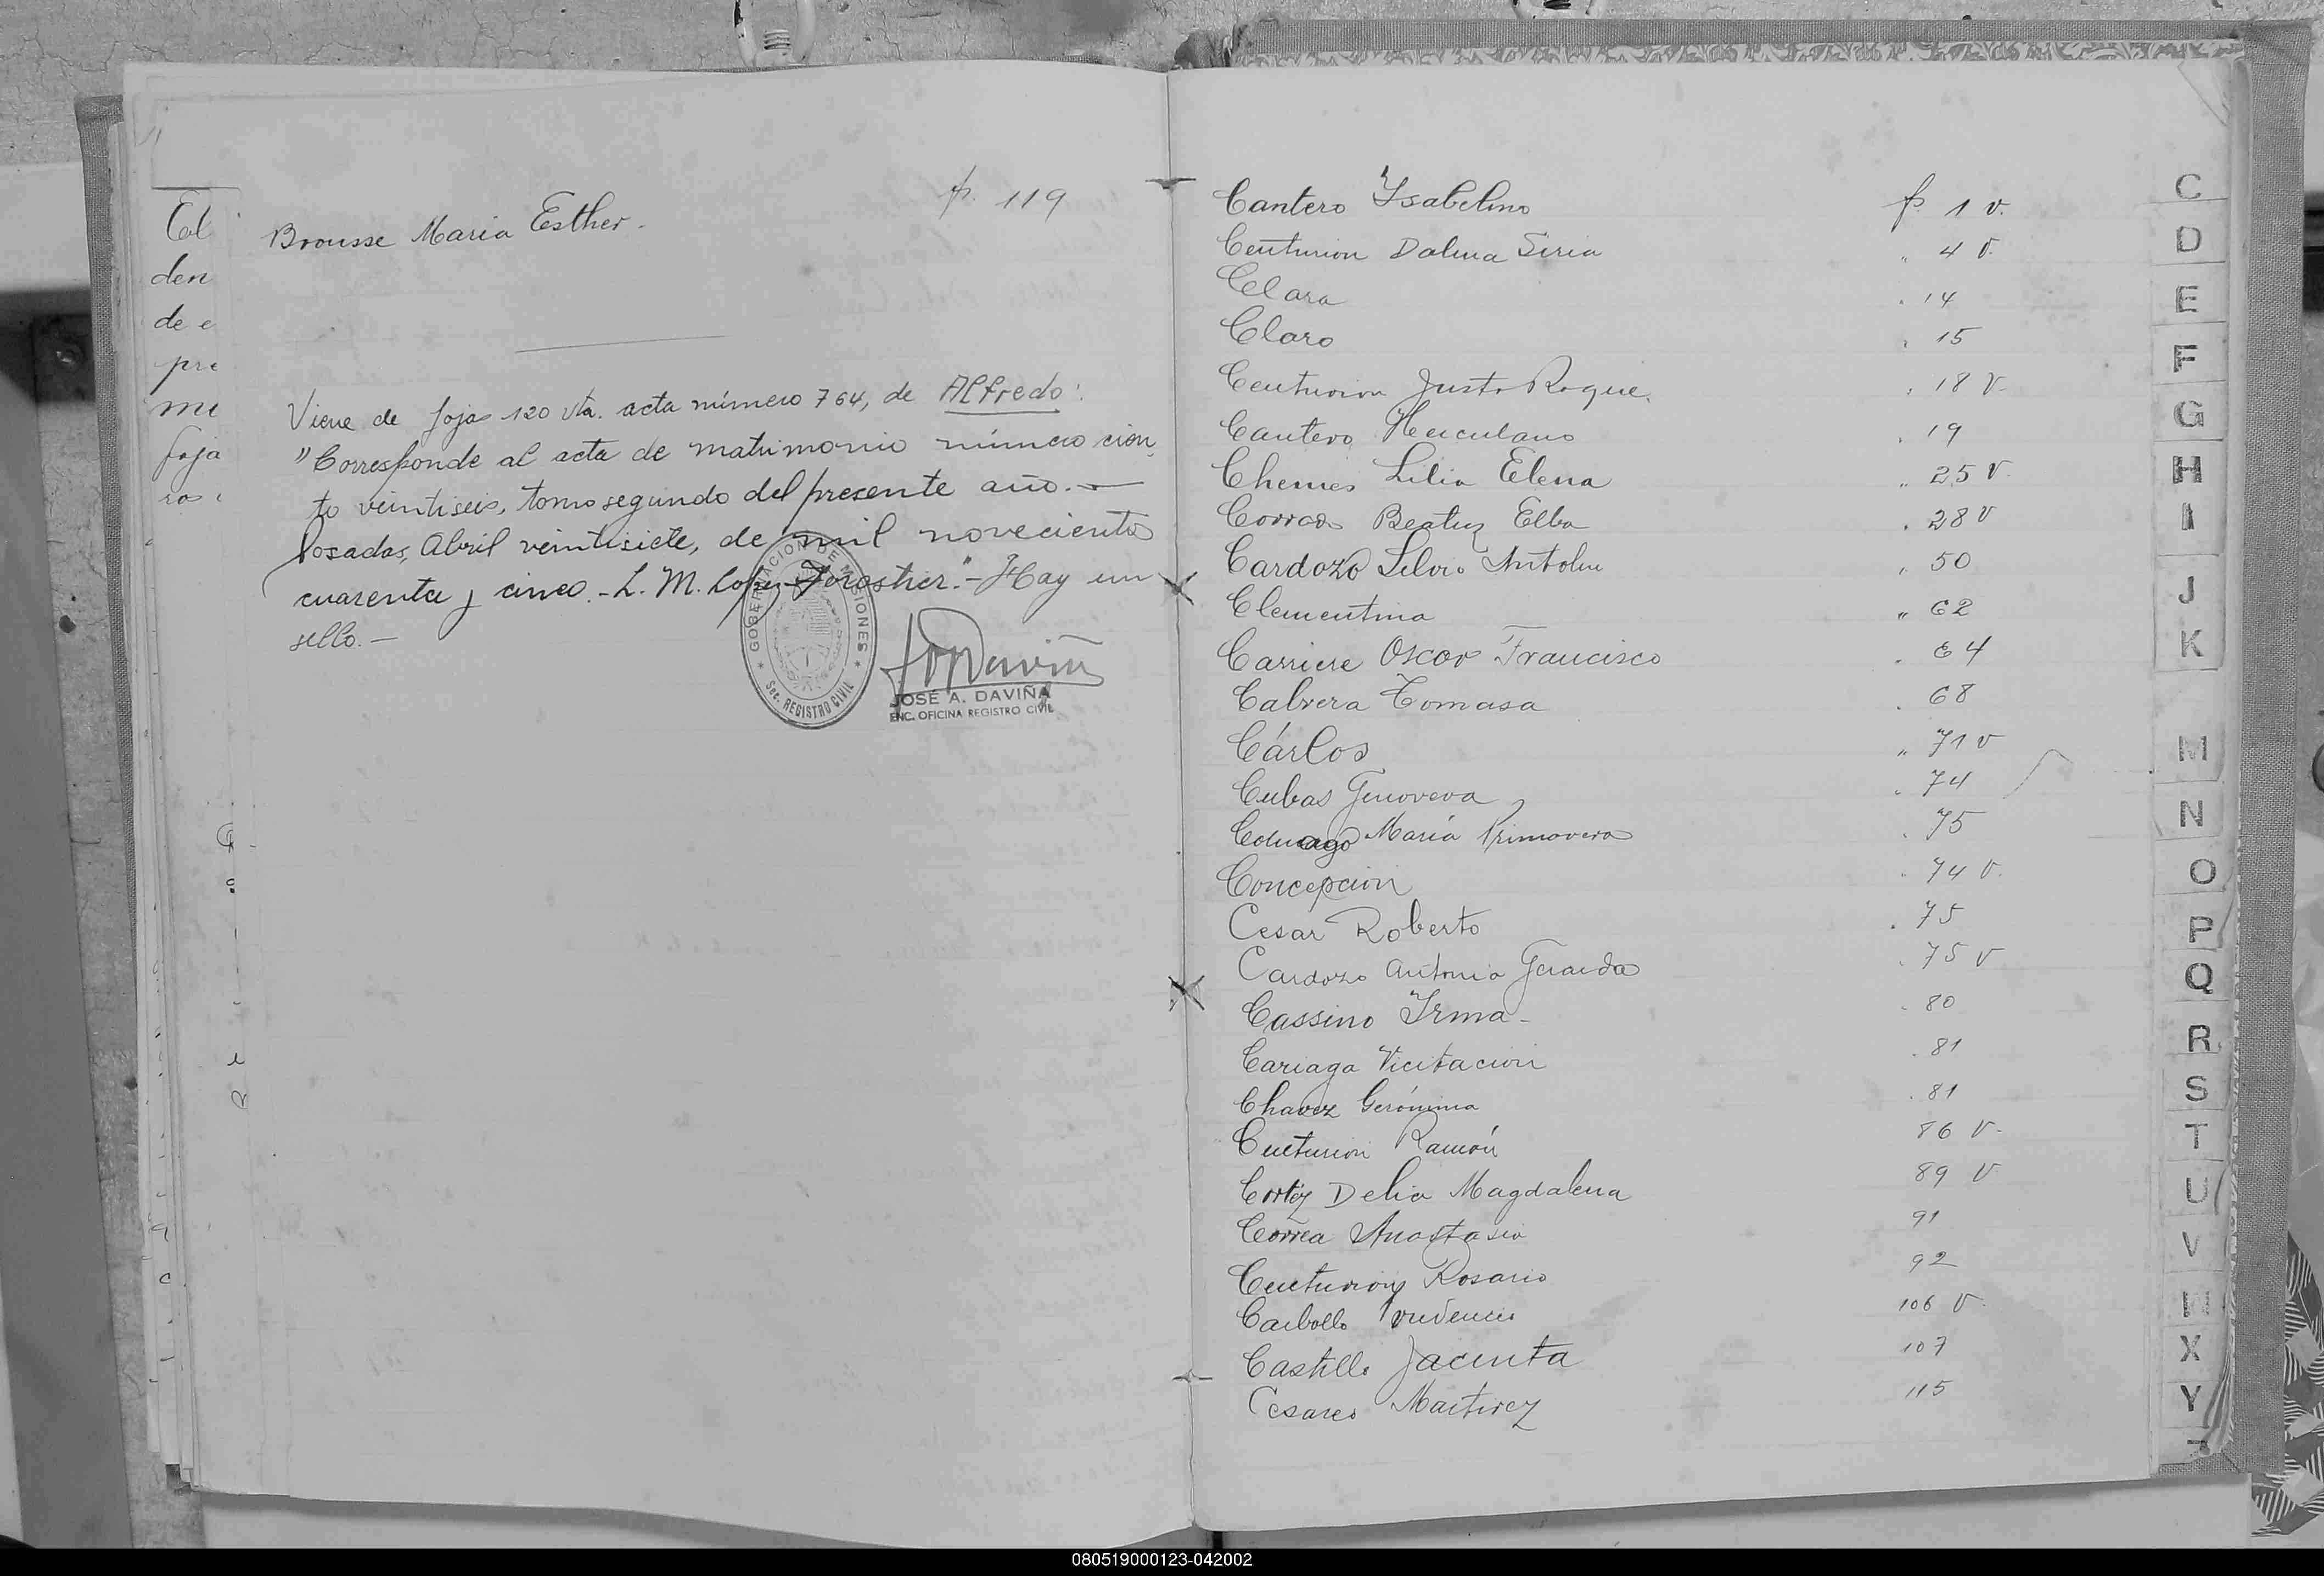 El
den
de e
pre
me
foja
ros
Brousse Maria Esther. f. 119
Viene de foja 120 vta. acta número 764, de Alfredo:
"Corresponde al acta de matrimonio número cien-
to veintiseis, tomo segundo del presente año. —
Posadas, Abril veintisiete, de mil novecientos
cuarenta y cinco. - L. M. Lopez Forastier." - Hay un
sello. —
GOBERNACION DE MISIONES
Sec. REGISTRO CIVIL
JOSÉ A. DAVIÑA
ENC. OFICINA REGISTRO CIVIL
Cantero Ysabelino f. 1 v.
Centurion Dalma Siria " 4 v.
Clara . 14
Claro , 15
Centurion Justo Roque. , 18 v.
Cantero Herculano . 19
Chemes Lilia Elena " 25 v.
Beatriz Elba . 28 v
Cardozo Silvio Antolin , 50
Clementina " 62
Carriere Oscar Francisco . 64
Cabrera Tomasa . 68
Cárlos " 71 v
Cubas Genoveva . 74
María Primavera . 75
Concepcion . 74 v.
Cesar Roberto . 75
Cardozo Antonia Gerarda . 75 v
Cassino Irma - . 80
Cariaga Vicitacion . 81
Chavez Gerónima . 81
Centurion Ramón 86 v.
Cortéz Delia Magdalena 89 v
Correa Anastasia 91
Centurion Rosario 92
Carballo Prudencio 106 v.
Castillo Jacinta 107
Cesareo Martirez 115
C
D
E
F
G
H
I
J
K
M
N
O
P
Q
R
S
T
U
V
X
Y
Z
080519000123-042002